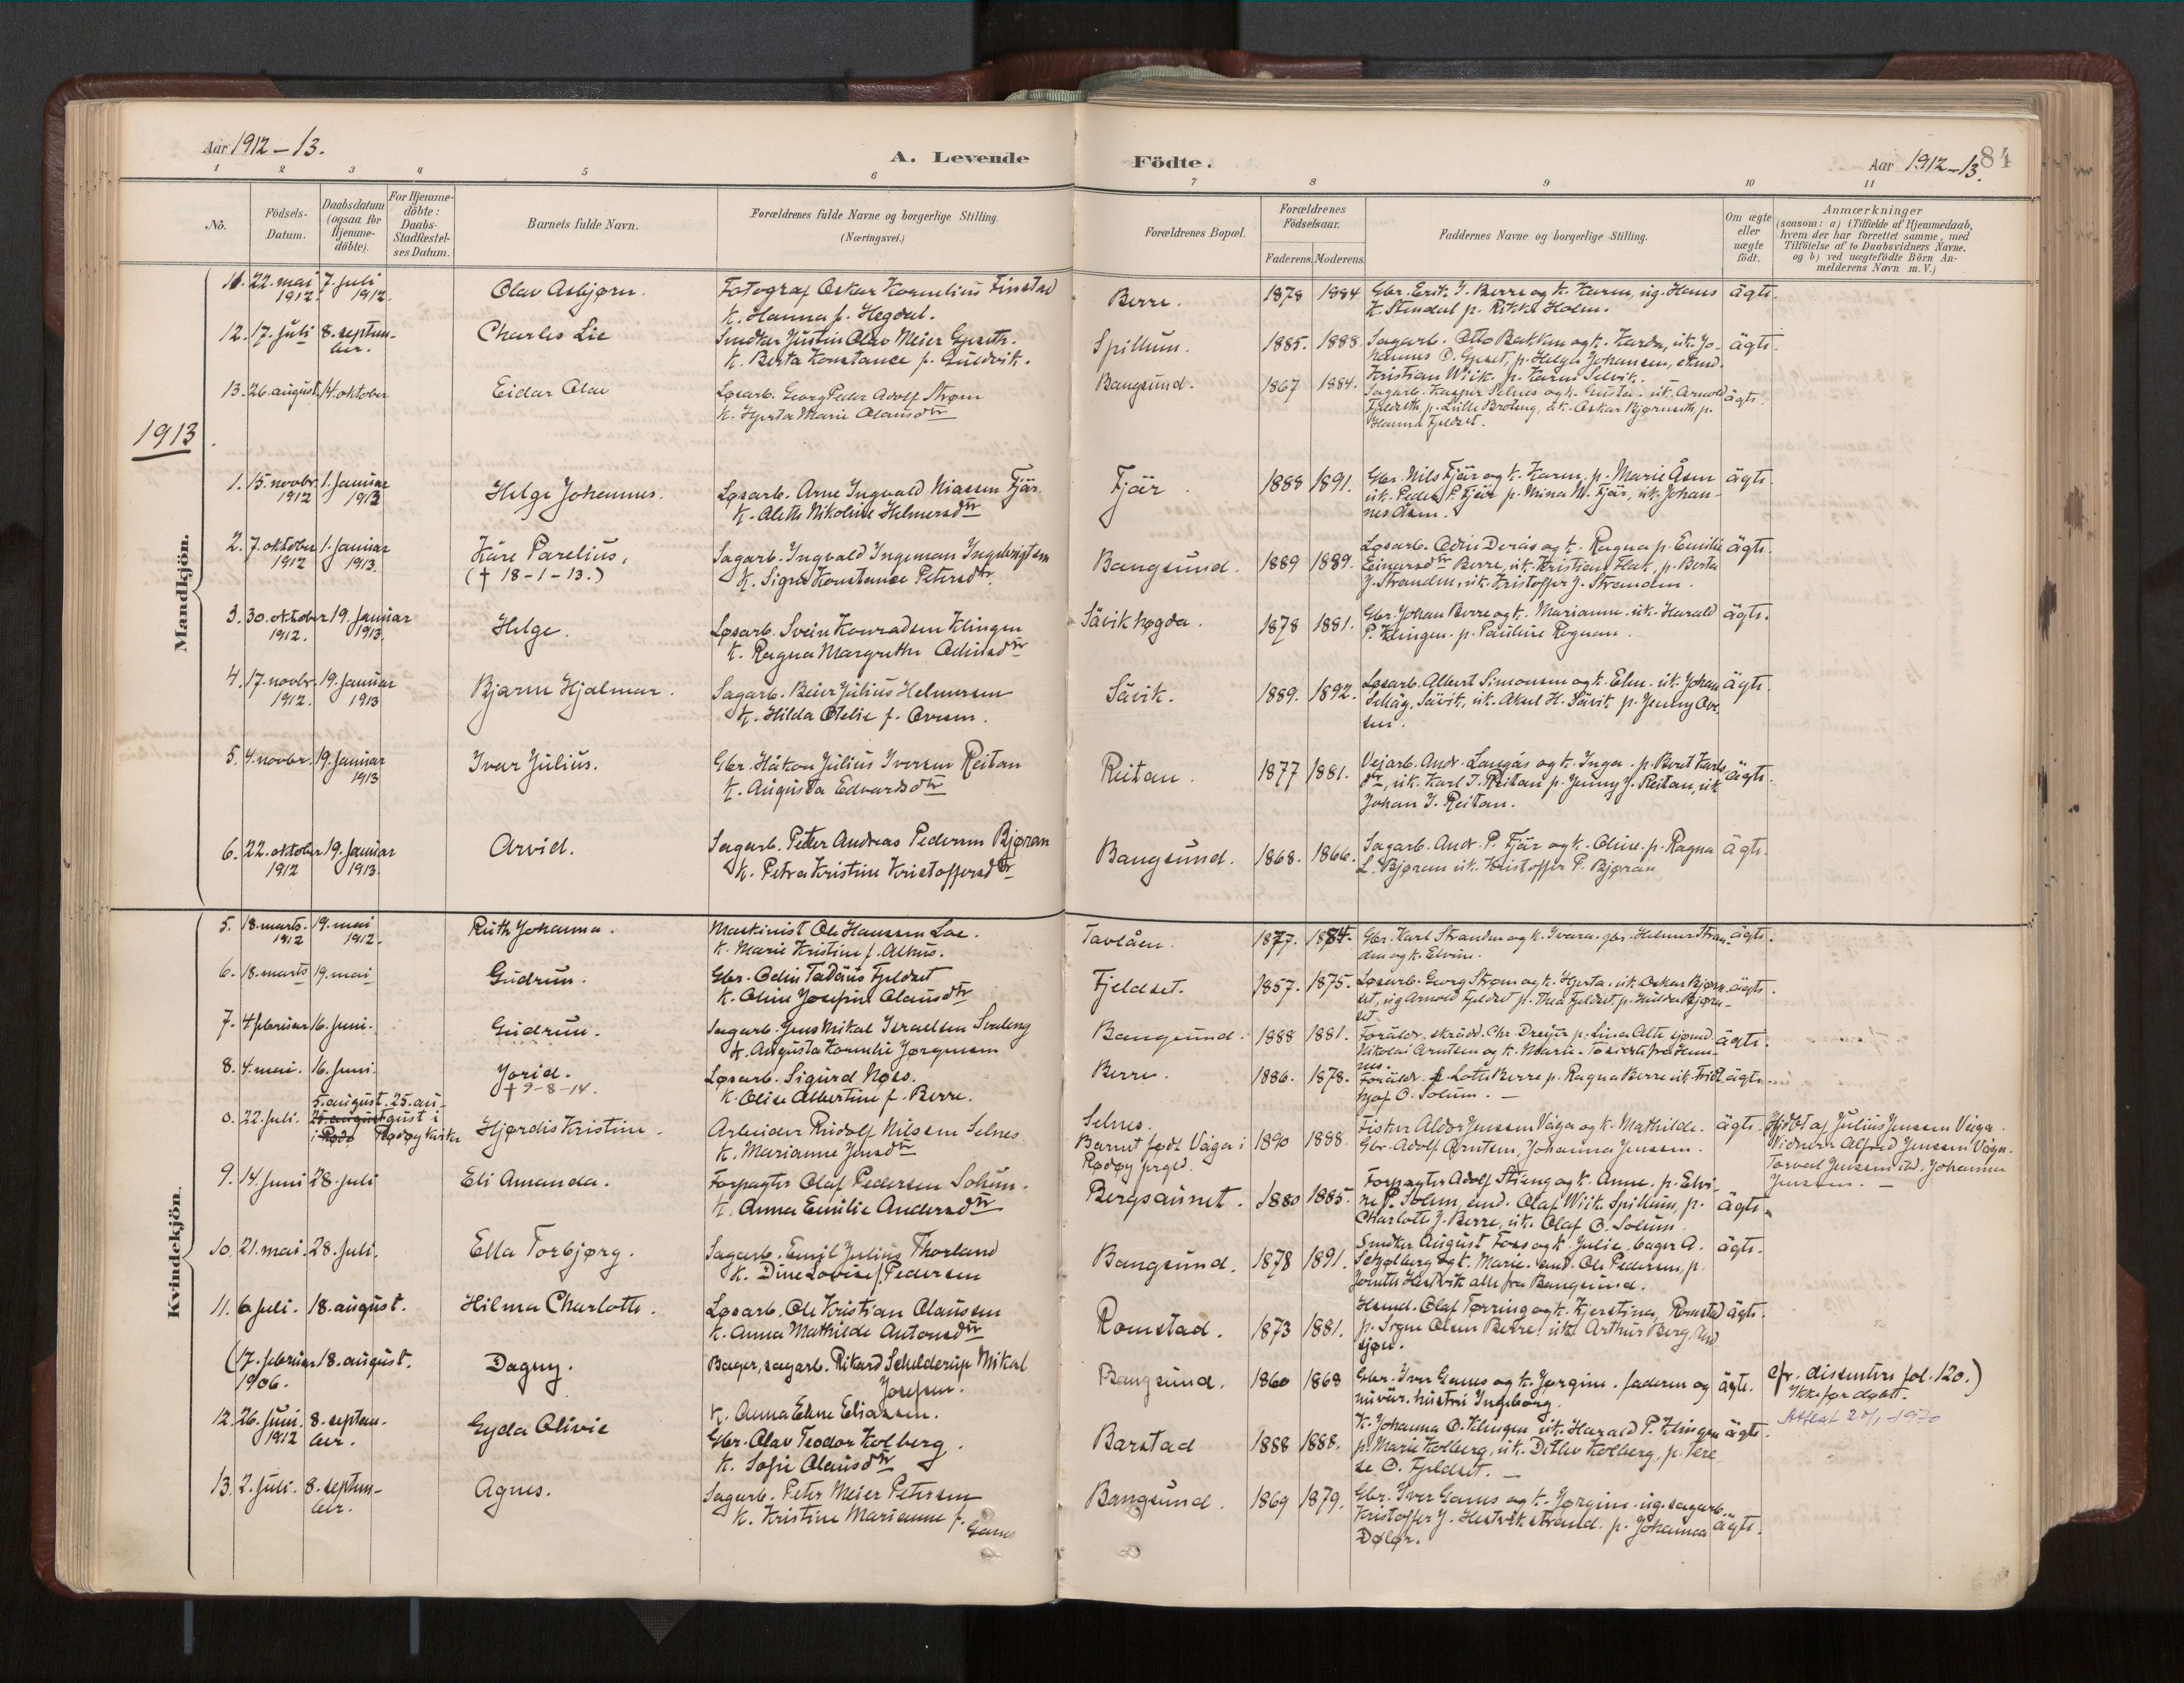 Aar 1912-13.
A. Levende Födte.
Aar 1912-13.
84
1 2 3 4 5 6 7 8 9 10 11
No.
Födsels-Datum.
Daabsdatum (ogsaa for Hjemme-döbte).
For Hjemme-döbte: Daabs-Stadfæstel-ses Datum.
Barnets fulde Navn.
Forældrenes fulde Navne og borgerlige Stilling. (Næringsvei.)
Forældrenes Bopæl.
Forældrenes Födselsaar.
Faderens. Moderens.
Faddernes Navne og borgerlige Stilling.
Om ægte eller uægte født.
Anmærkninger
(saasom: a) i Tilfælde af Hjemmedaab,
hvem der har forrettet samme, med
Tilföielse af to Daabsvidners Navne,
og b) ved uægtefödte Börn An-
melderens Navn m. V.)
Mandkjön.
11. 22. mai 1912. 7. juli 1912. Olav Asbjørn. Fotograf Oskar Kornelius Finstad
K. Hanna f. Hegdal. Berre. 1878 1884 Gbr. Erik J. Berre og k. Karen, ug. Hans
K. Stendal p. Rikka Holm. ägte.
12. 17. juli 8. septem-ber. Charles Lie Smdkar Justin Olav Meier Gpseth.
K. Berta Konstance f. Guldvik. Spillum. 1885. 1888. Sagarb. Otto Bakken og k. Karda, uk. Jo-
hannes O. Gpset, p. Helga Johansen, stud.
Kristian Wiik. p. Karni Selvik. ägte.
13. 26. august. 14. oktober Eidar Olav Løsarb. Georg Peder Adolf Strøm
K. Hjerta Marie Olausdtr Bangsund. 1867 1884. Sagarb. Kasper Selnes og k. Gusta. uk. Arnold
Fjeldseth p. Lilli Broteng, uk. Oskar Bjørnseth, p.
Hanna Fjeldset. ägte.
1913.
1. 15. novbr. 1912 1. januar 1913 Helge Johannes. Løsarb. Arne Ingvald Niassen Fjär
K. Alette Nikoline Helmersdtr Fjär. 1888 1891. Gbr. Nils Fjär og k. Karen, p. Marie Åsen
uk. Peder P. Fjär p. Mina M. Fjär, uk. Johan-
nes Åsen. ägte.
2. 7. oktober 1912 1. januar 1913. Kåre Parelius, Sagarb. Ingvald Ingeman Ingebrigtsen
(† 18-1-13.) K. Signe Konstance Petersdtr. Bangsund. 1889 1889. Løsarb. Odin Derås og k. Ragna p. Emilie
Einarsdtr Berre, uk. Kristian Hat, p. Berta
J. Stranden, uk. Kristoffer J. Stranden. ägte.
3. 30. oktober 1912. 19. januar 1913. Helge. Løsarb. Svein Konradsen Klingen
K. Ragna Margrethe Odinsdtr Sävikhøgda. 1878 1881. Gbr. Johan Berre og k. Marianne. uk. Harald
P. Klingen. p. Pauline Rognan. ägte.
4. 17. novbr. 1912. 19. januar 1913 Bjarne Hjalmar. Sagarb. Beier Julius Helmersen
K. Hilda Otelie f. Ovesen. Sävik. 1889. 1892. Løsarb. Albert Simonsen og k. Elen. uk. Johan
Selläg, Sävik, uk. Aksel H. Sävik p. Jenny Ove-
sen. ägte.
5. 4. novbr. 19. januar 1913 Ivar Julius. Gbr. Håkon Julius Iversen Reitan
K. Augusta Edvardsdtr Reitan. 1877 1881. Veiarb. Andr. Langås og k. Inga. p. Beret Karls-
dtr, uk. Karl J. Reitan p. Jenny J. Reitan, uk
Johan J. Reitan. ägte.
6. 22. oktober 1912 19. januar 1913. Arvid. Sagarb. Peter Andreas Pedersen Bjøran
K. Petra Kristine Kristoffersdtr Bangsund. 1868. 1866. Sagarb. Andr. P. Fjär og k. Oline. p. Ragna
L. Bjøran uk. Kristoffer P. Bjøran ägte.
Kvindekjön.
5. 18. marts. 1912 19. mai 1912. Ruth Johanna. Maskinist Ole Hansen Loe.
K. Marie Kristine f. Alhus. Tavlåen. 1877. 1884. Gbr. Karl Stranden og k. Ivara. gbr. Helmer Stran-
den og k. Elvine. ägte.
6. 18. marts 19. mai Gudrun. Gbr. Odin Tadäus Fjeldset
K. Oline Josefine Olausdtr Fjeldset. 1857. 1875. Løsarb. Georg Strøm og k. Hjerta. uk Oskar Bjørn-
set, ug Arnold Fjeldset p. Thea Fjeldset. p. Hulda Bjørn-
set. ägte.
7. 4 februar 16. juni. Gudrun. Sagarb. Jens Mikal Israelsen Sveling
K. Augusta Kornelie Jørgensen Bangsund. 1888 1881. Foräldr. skräd. Chr. Dreyer p. Lina Alte sjømd.
Nikolai Arntsen og k. Marie. ägte.
8. 4. mai. 16. juni. Jorid. Løsarb. Sigurd Nøss.
† 9-8-14. K. Olise Albertine f. Berre. Berre. 1886. 1878. Foräldr. p. Lotte Berre p. Ragna Berre uk. Fridt-
hjof O. Solum. ägte.
0. 22. juli. 5. august. 25. au-gust i Rødøy kirke Hjørdis Kristine. Arbeider Rudolf Nilsen Selnes.
K. Marianne Jensdtr Selnes.
Barnet født Våga i
Rødøy prgd. 1890 1888. Fisker Aldor Jenssen Våga og k. Mathilde.
Gbr. Adolf Arntsen, Johanna Jenssen. ägte. Hjdbt af Julius Jenssen Våga.
Vidner: Alfred Jenssen Våga.
Torvald Jenssen ibd, Johanna
Jenssen.
9. 14. juni 28. juli Eli Amanda. Forpagter Olaf Pedersen Solum.
K. Anna Emilie Andersdtr Bergsaunet. 1880 1885. Forpagter Adolf Stieng og k. Anne. p. Elvi-
ne P. Solum, smd. Olaf Wiik Spillum, p.
Charlotte J. Berre, uk. Olaf O. Solum. ägte.
10. 21. mai. 28. juli. Ella Torbjørg. Sagarb. Emil Julius Thorland
K. Dine Lovise f. Pedersen Bangsund. 1878 1891. Smdkar August Foss og k. Julie, bager A.
Setzølberg og k. Marie. smd. Ole Pedersen, p.
Hestvik alle fra Bangsund. ägte.
11. 6 juli. 18. august. Hilma Charlotte. Løsarb. Ole Kristian Olaussen
K. Anna Mathilde Antonsdtr Romstad. 1873 1881. Hsmd. Olaf Tørring og k. Kjerstina, Romstad
p. Signe Olsen Berre. uk. Arthur Berg, Und
sjøen. ägte.
(17. februar 1906. 18. august. Dagny. Bager, sagarb. Rikard Schelderup Mikal
Josefsen.
K. Anna Elene Eliassen. Bangsund. 1860 1868 Gbr. Iver Gams og k. Jørgine. faderen og
nuvär. hustru Ingeborg. ägte. cfr. dissenters fol. 120.)
Ikke før døbt.
Attest 20/1 1970
12. 26. juni 1912 8. septem-ber. Gyda Olivie Gbr. Olav Teodor Kolberg.
K. Sofie Olausdtr Barstad 1888 1888. K. Johanna O. Klingen uk. Harald P. Klingen
p. Marie Kolberg, uk. Ditlev Kolberg, p. Tere-
se O. Fjeldset. ägte.
13. 2. juli. 8. septem-ber. Agnes. Sagarb. Peter Meier Petersen
K. Kristine Marianne f. Gams Bangsund. 1869 1879. Gbr. Iver Gams og k. Jørgine. ug. sagarb.
Kristoffer J. Hestvikstrand. p. Johanna
Døløy. ägte.